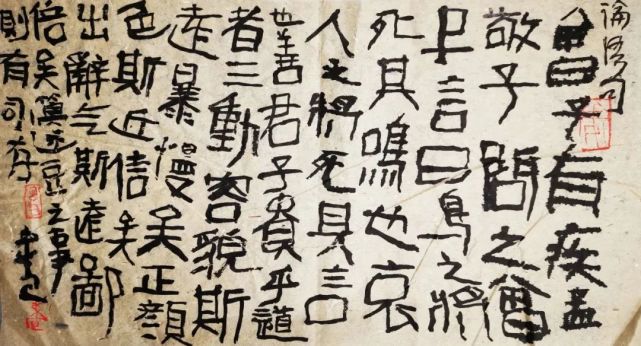 論語句
曾子有疾孟
敬子問之曾
子言曰鳥之將
死其鳴也哀
人之將死其言
也善君子貴乎道
者三動容貌斯
遠暴慢矣正顏
色斯近信矣
出辭气斯遠鄙
倍矣籩豆之事
則有司存